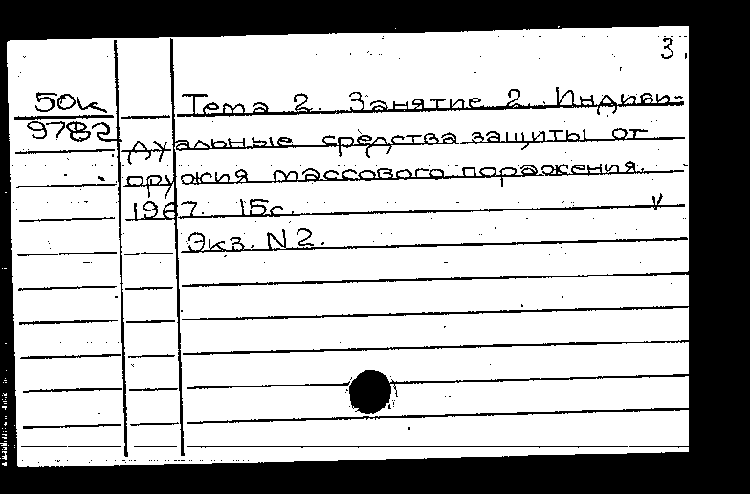 3.
50к Тема 2. Занятие 2. Индиви-
9782 дуальные средства защиты от
оружия массового поражения.
1967. 15с. V
Экз. N2.